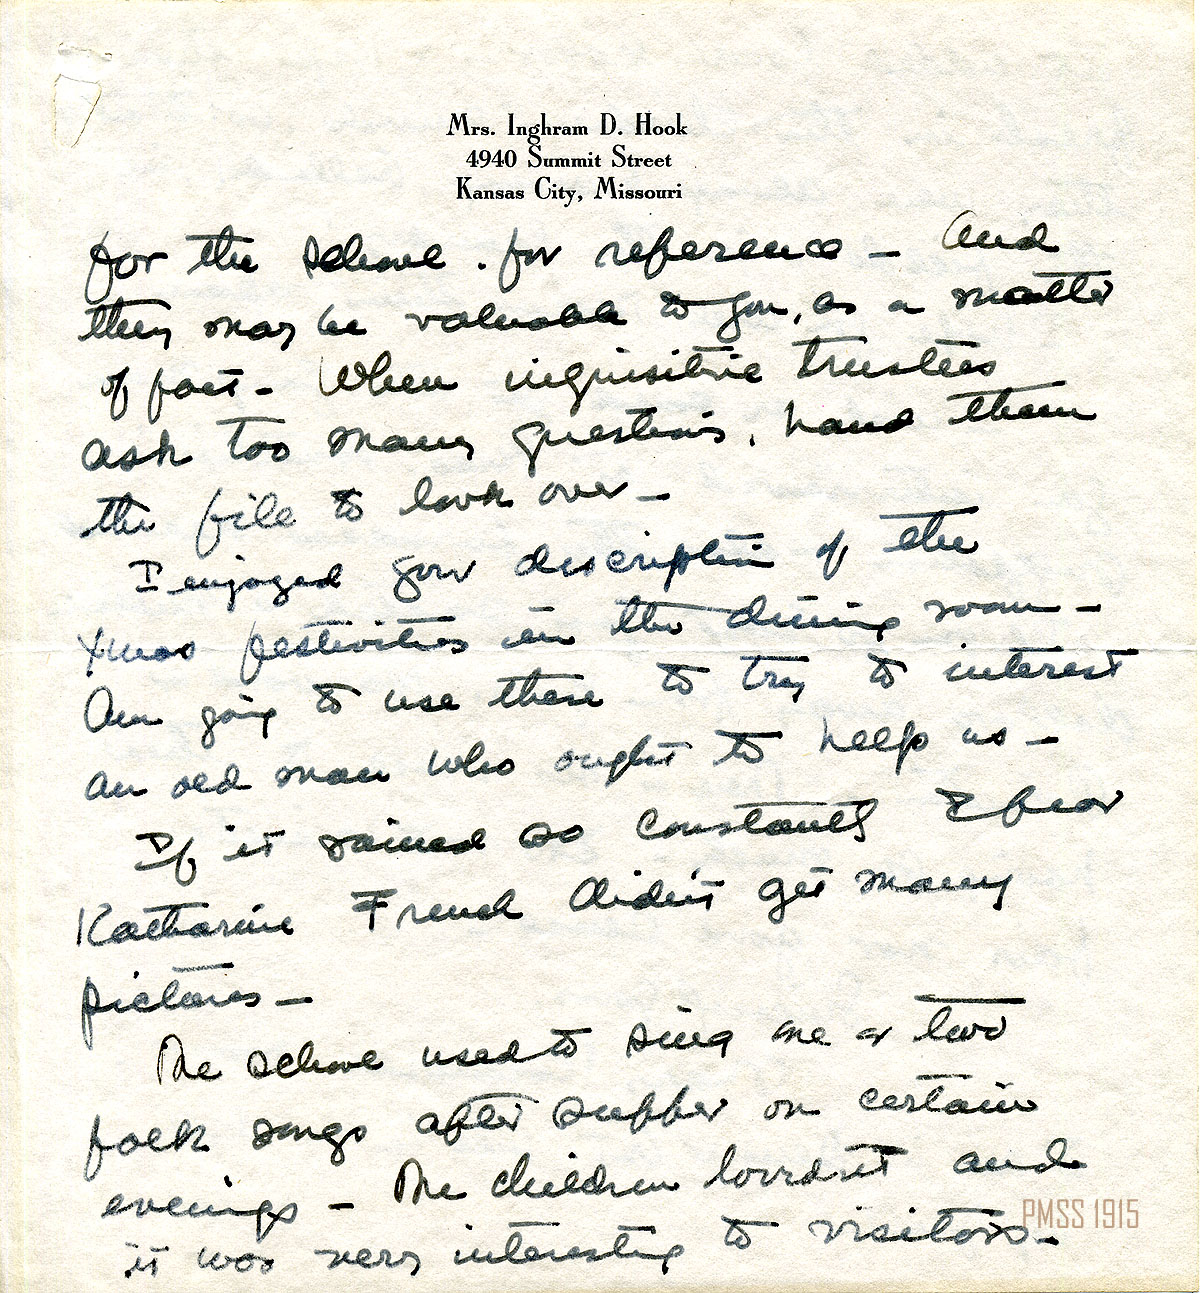 Mrs. Inghram D. Hook
4940 Summit Street
Kansas City, Missouri
for the school. for reference – And
they may be valuable to you, as a matter
of fact – When inquisitive trustees
ask too many questions, hand them
the file to look over –
I enjoyed your description of the
Xmas festivities in the dining room –
Am going to use these to try to interest
an old man who ought to help us –
If it rained so constantly I fear
Katharine French didn't get many
pictures –
The school used to sing one or two
folk songs after supper on certain
evenings – The children loved it and
it was very interesting to visitors –
PMSS 1915